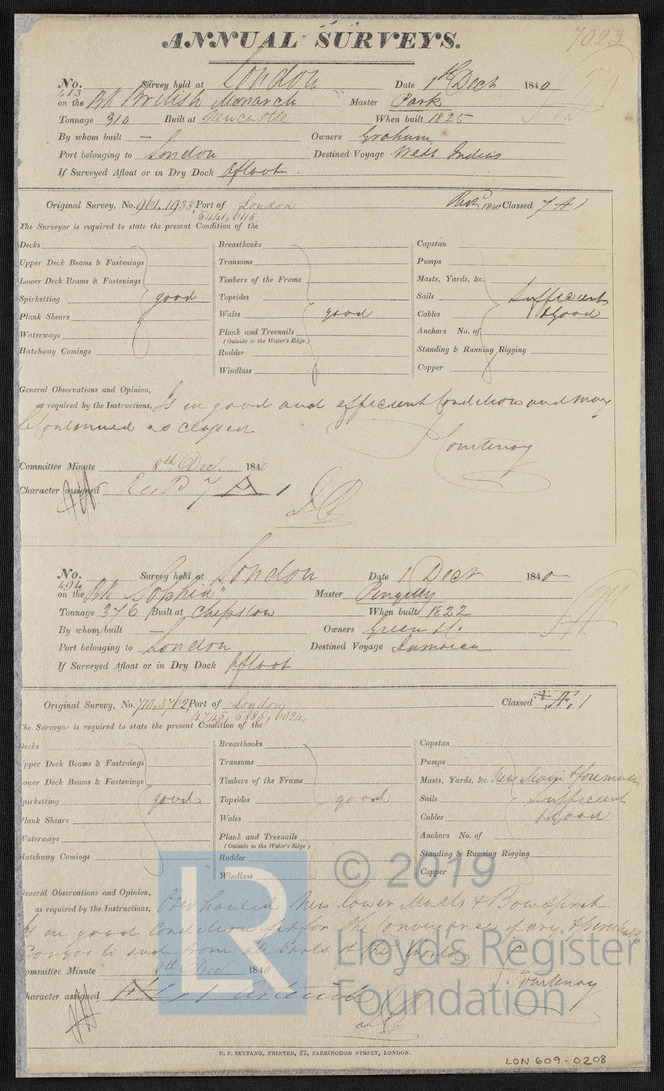 7023
ANNUAL SURVEYS.
No. 493 Survey held at London Date 1st Dect 1840
on the Bk British Monarch Master Parks
Tonnage 310 Built at Newcastle When built 1825
By whom built — Owners Graham
Port belonging to London Destined Voyage West Indies
If Surveyed Afloat or in Dry Dock Afloat.
Original Survey, No. 961, 1933 Port of London Classed 7 A 1
5441, 6115
The Surveyor is required to state the present Condition of the
Decks Breasthooks Capstan
Upper Deck Beams & Fastenings Transoms Pumps
Lower Deck Beams & Fastenings Timbers of the Frame Masts, Yards, &c.
Spirketting good Topsides Sails Sufficient
Plank Shears Wales good Cables & Good
Waterways Plank and Treenails Anchors No. of
(Outside to the Water's Edge.)
Hatchway Comings Rudder Standing & Running Rigging
Windlass Copper
General Observations and Opinion,
as required by the Instructions, Is in good and efficient Condition and may
be Continued as classed
Courtenay
Committee Minute 8th Dec. 1840
Character assigned 7 A 1
No. 494 Survey held at London Date 1 Dect 1840
on the Bk "Sophia" Master Pengelly
Tonnage 376 Built at Chepstow When built 1822
By whom built — Owners Green
Port belonging to London Destined Voyage Jamaica
If Surveyed Afloat or in Dry Dock Afloat
Original Survey, No. 710, 3762 Port of London Classed Æ 1
4745, 5385, 6024
The Surveyor is required to state the present Condition of the
Decks Breasthooks Capstan
Upper Deck Beams & Fastenings Transoms Pumps
Lower Deck Beams & Fastenings Timbers of the Frame Masts, Yards, &c. New Main & Foremasts
Spirketting good Topsides good Sails Sufficient
Plank Shears Wales Cables & Good
Waterways Plank and Treenails Anchors No. of
(Outside to the Water's Edge.)
Hatchway Comings Rudder Standing & Running Rigging
Windlass Copper
General Observations and Opinion,
as required by the Instructions, Overhauled New lower Masts & Bowsprit
Is in good Condition fit for the Conveyance of dry & perishable
Cargoes to and from all parts of the World
Courtenay
Committee Minute 8th Dec 1840
Character assigned
C. F. SEYFANG, PRINTER, 57, FARRINGDON STREET, LONDON.
LON 609-0208
LR
© 2019
Lloyd's Register
Foundation